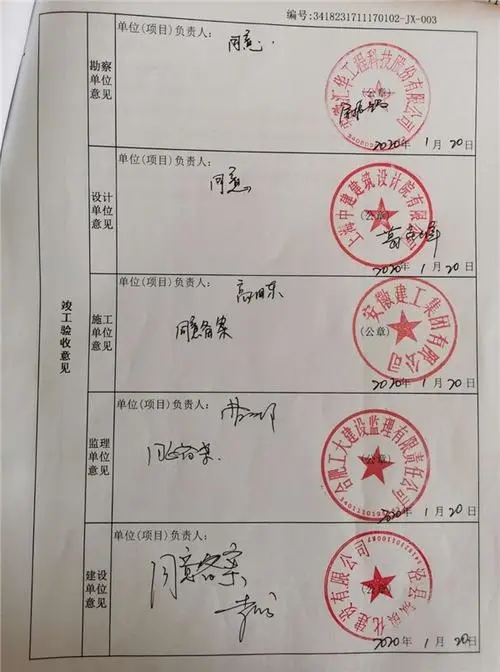 编号:3418231711170102-JX-003
竣工验收意见
勘察单位意见
单位(项目)负责人:
同意
(公章)
2020年1月20日
设计单位意见
单位(项目)负责人:
同意
上海中建建筑设计院有限公司
(公章)
2020年1月20日
施工单位意见
单位(项目)负责人:
同意备案
安徽建工集团有限公司
(公章)
2020年1月20日
监理单位意见
单位(项目)负责人:
同意备案
合肥工大建设监理有限责任公司
(公章)
2020年1月20日
建设单位意见
单位(项目)负责人:
同意备案
(公章)
2020年1月20日